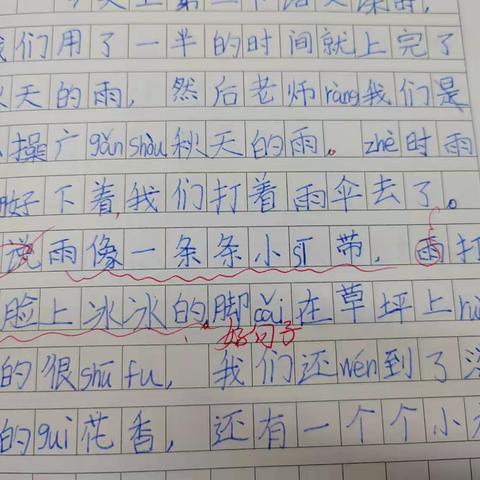 我们用了一半的时间就上完了
秋天的雨，然后老师ràng我们是
操广gǎn shòu秋天的雨。zhè时雨
好下着，我们打着雨伞去了。
说雨像一条条小丝带，雨打
脸上冰冰的，脚cǎi在草坪上
好句子
的很shū fu，我们还wén到了
的gui花香，还有一个个小